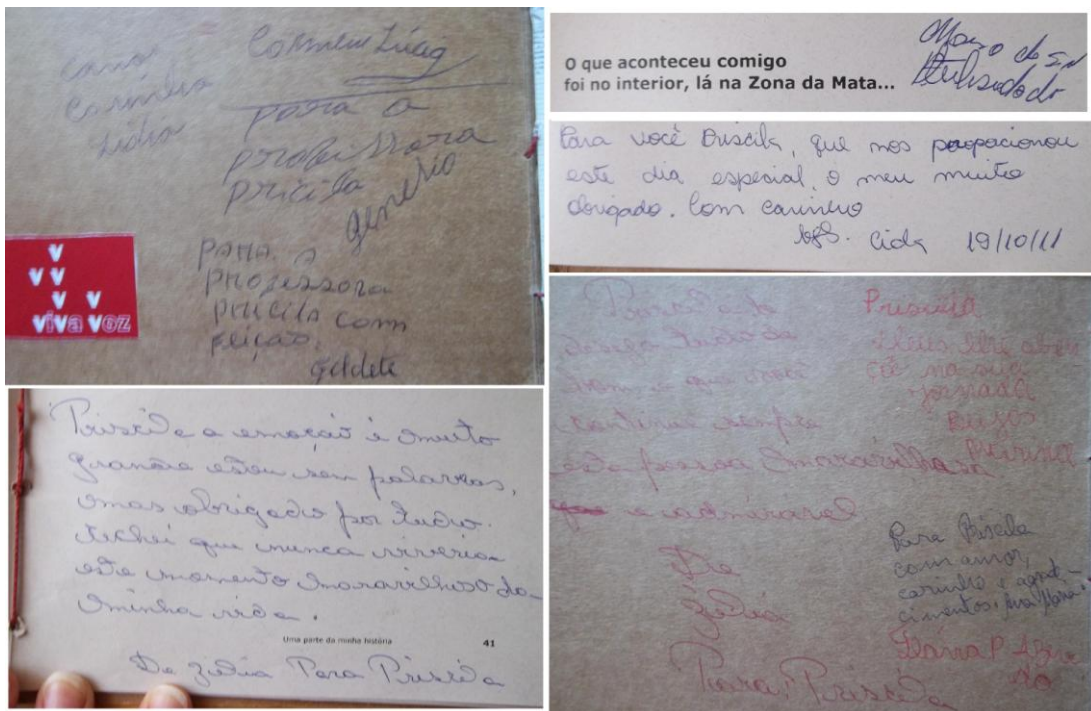 com
Carinho
Lidia
Carmem Lúcia
para a
professora
pricila
generio
PARA A
professora
pricila com
feição.
gildete
viva voz
O que aconteceu comigo
foi no interior, lá na Zona da Mata...
Para você Priscila, que nos propocionou
este dia especial, o meu muito
obrigado. Com carinho
bjs. Cida 19/10/11
Priscila a emoção é muito
grande estou sem palavras,
mas obrigado por tudo.
Achei que nunca viveria
este momento maravilhoso da
minha vida.
Uma parte da minha história 41
De Zidia Para Priscila
tudo de
bom e que você
continue sempre
esta pessoa maravilhosa
e admiravel
De
Zidia
Para: Priscila
Priscila
Deus lhe aben
çoe na sua
jornada
Beijos
Para Priscila
com amor,
carinho e agrade-
cimentos.